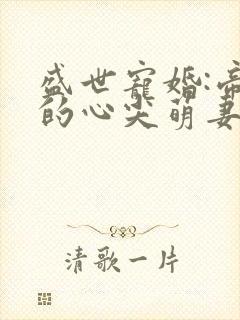 盛世宠婚:帝
的心尖萌妻
清歌一片